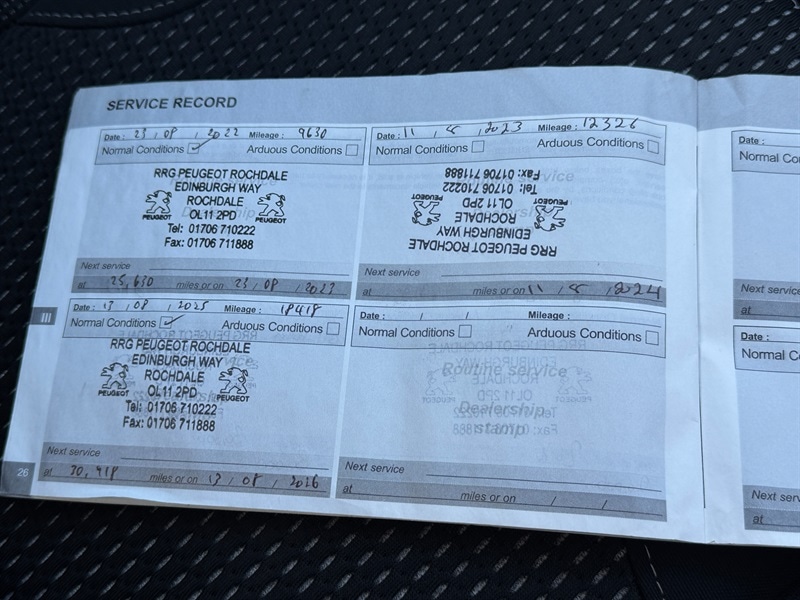 SERVICE RECORD
Date : 23 / 08 / 2022 Mileage : 9630
Normal Conditions ✓ Arduous Conditions
RRG PEUGEOT ROCHDALE
EDINBURGH WAY
ROCHDALE
PEUGEOT OL11 2PD PEUGEOT
Tel: 01706 710222
Fax: 01706 711888
Next service
at 25,630 miles or on 23 / 08 / 2023
Date : 11 / 8 / 2023 Mileage : 12326
Normal Conditions Arduous Conditions
RRG PEUGEOT ROCHDALE
EDINBURGH WAY
ROCHDALE
PEUGEOT OL11 2PD PEUGEOT
Tel: 01706 710222
Fax: 01706 711888
Next service
at miles or on 11 / 8 / 2024
III
Date : 13 / 08 / 2025 Mileage : 18418
Normal Conditions ✓ Arduous Conditions
RRG PEUGEOT ROCHDALE
EDINBURGH WAY
ROCHDALE
PEUGEOT OL11 2PD PEUGEOT
Tel: 01706 710222
Fax: 01706 711888
Next service
at 30,418 miles or on 13 / 08 / 2026
Date : / / Mileage :
Normal Conditions Arduous Conditions
Routine service
Dealership
stamp
Next service
at miles or on / /
26
Date :
Normal Co
Next serv
at
Date :
Normal C
Next serv
at